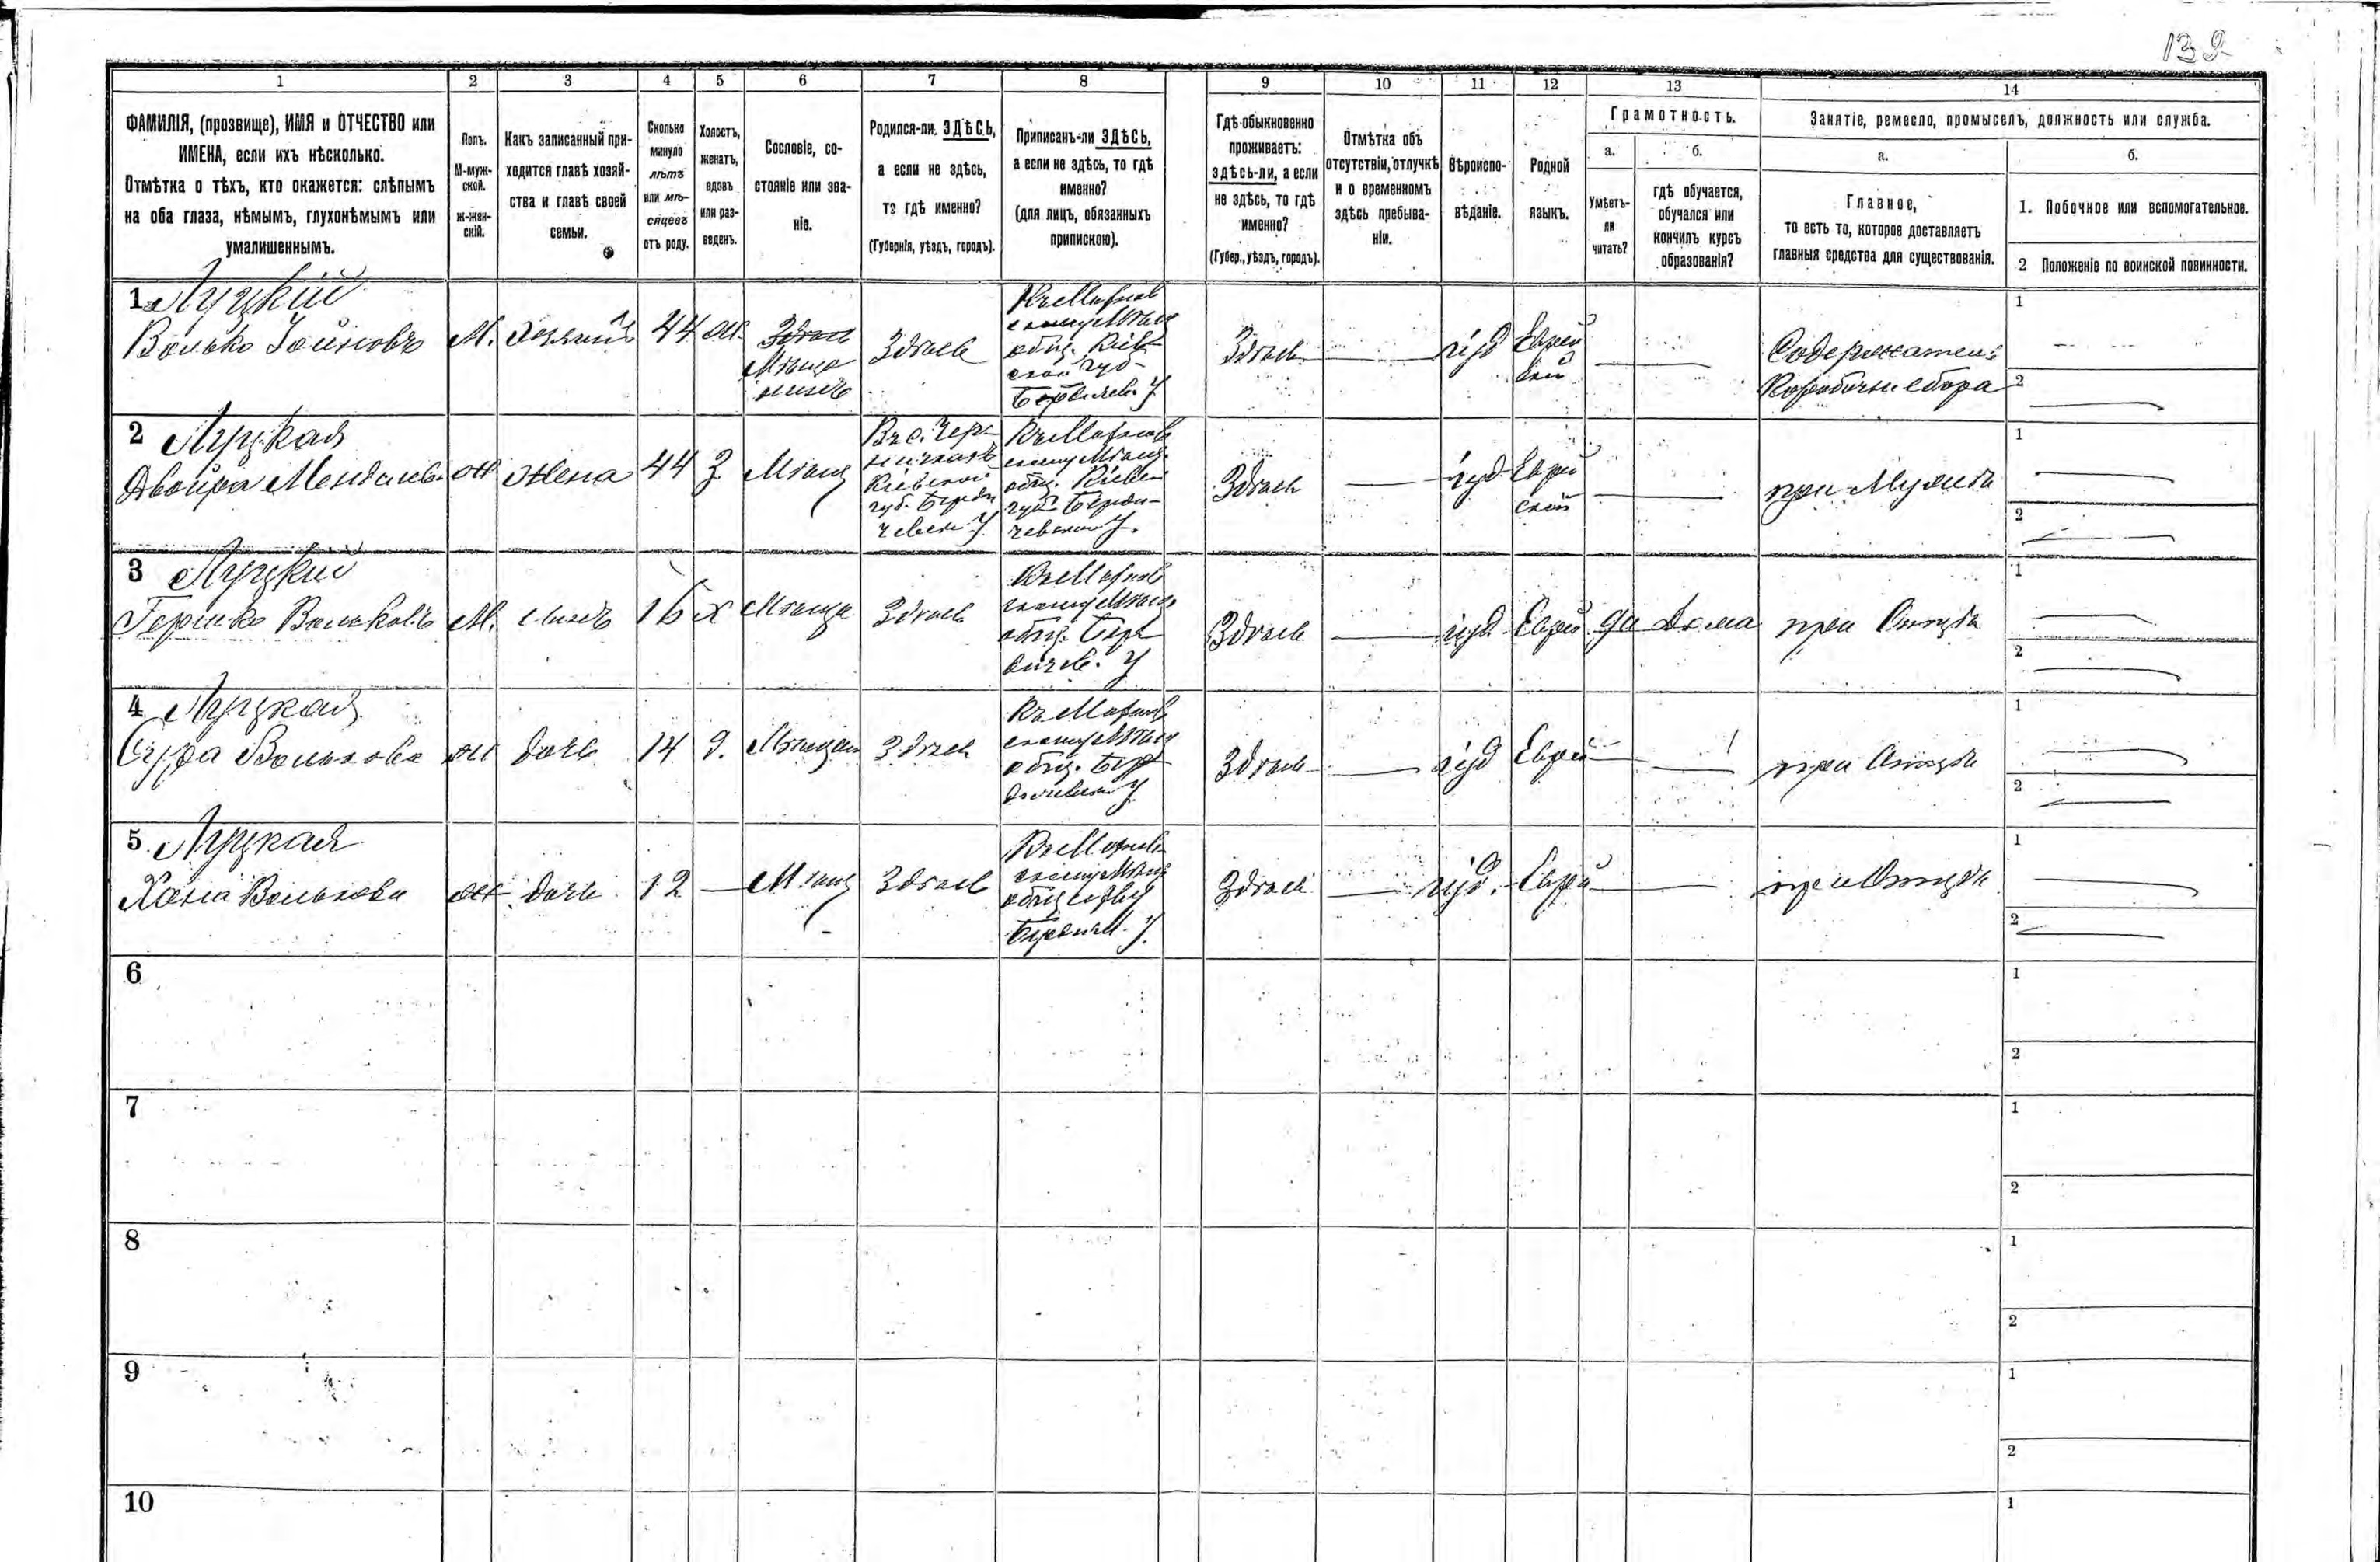 139
1
2
3
4
5
6
7
8
9
10
11
12
13
14
ФАМИЛІЯ, (прозвище), ИМЯ и ОТЧЕСТВО или
ИМЕНА, если ихъ нѣсколько.
Отмѣтка о тѣхъ, кто окажется: слѣпымъ
на оба глаза, нѣмымъ, глухонѣмымъ или
умалишеннымъ.
Полъ.
М-муж-
ской.
ж-жен-
скій.
Какъ записанный при-
ходится главѣ хозяй-
ства и главѣ своей
семьи.
Сколько
минуло
лѣтъ
или мѣ-
сяцевъ
отъ роду.
Холостъ,
женатъ,
вдовъ
или раз-
веденъ.
Сословіе, со-
стояніе или зва-
ніе.
Родился-ли ЗДѢСЬ,
а если не здѣсь,
то гдѣ именно?
(Губернія, уѣздъ, городъ).
Приписанъ-ли ЗДѢСЬ,
а если не здѣсь, то гдѣ
именно?
(для лицъ, обязанныхъ
припискою).
Гдѣ обыкновенно
проживаетъ:
здѣсь-ли, а если
не здѣсь, то гдѣ
именно?
(Губер., уѣздъ, городъ).
Отмѣтка объ
отсутствіи, отлучкѣ
и о временномъ
здѣсь пребыва-
ніи.
Вѣроиспо-
вѣданіе.
Родной
языкъ.
Грамотность.
а.
Умѣетъ-
ли
читать?
б.
гдѣ обучается,
обучался или
кончилъ курсъ
образованія?
Занятіе, ремесло, промыселъ, должность или служба.
а.
Главное,
то есть то, которое доставляетъ
главныя средства для существованія.
б.
1. Побочное или вспомогательное.
2 Положеніе по воинской повинности.
1 Луцкій
Волько
М. хозяинъ 44 ж
Мѣща
нинъ
Здѣсь
общ. Кіев
ской губ
Здѣсь
іуд
Еврей
ской
Содержатель
Коробочн сбора
1
2
2 Луцкая
Двойра
ж жена 44 З Мѣщ
Кіевской
губ. Берди
чевск у.
общ. Кіевс
губ Берди-
чевском у.
Здѣсь
іуд
Еврей
ской
при Мужѣ
1
2
3 Луцкій
Гершко Вольковъ М. сынъ 16 х Мѣща Здѣсь
общ. Бер
дичев. у
Здѣсь іуд Еврей да Дома при Отцѣ
1
2
4 Луцкая
Сура Волькова ж дочь 14 д. Мѣщан Здѣсь
общ. Бер
дичевском у
Здѣсь іуд Еврей при Отцѣ
1
2
5 Луцкая
Хана Волькова ж дочь 12 Мѣщ Здѣсь
обществу
Бердичев. у.
Здѣсь іуд. Еврей при Отцѣ
1
2
6
1
2
7
1
2
8
1
2
9
1
2
10
1